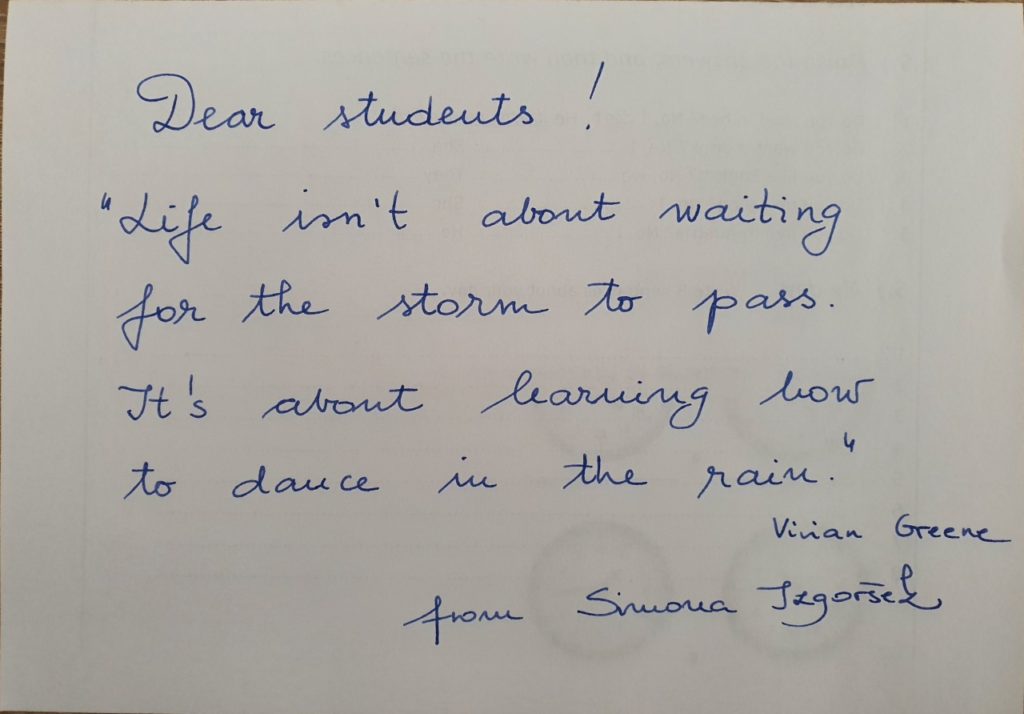 Dear students!
"Life isn't about waiting
for the storm to pass.
It's about learning how
to dance in the rain."
Vivian Greene
from Simona Izgoršek